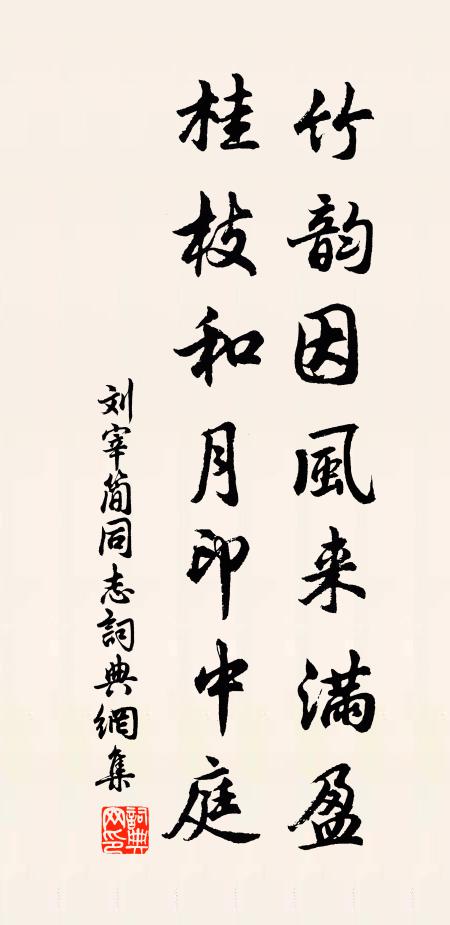 竹韵因風来满盈
桂枝和月印中庭
刘宰简同志詞典網集
詞典网印